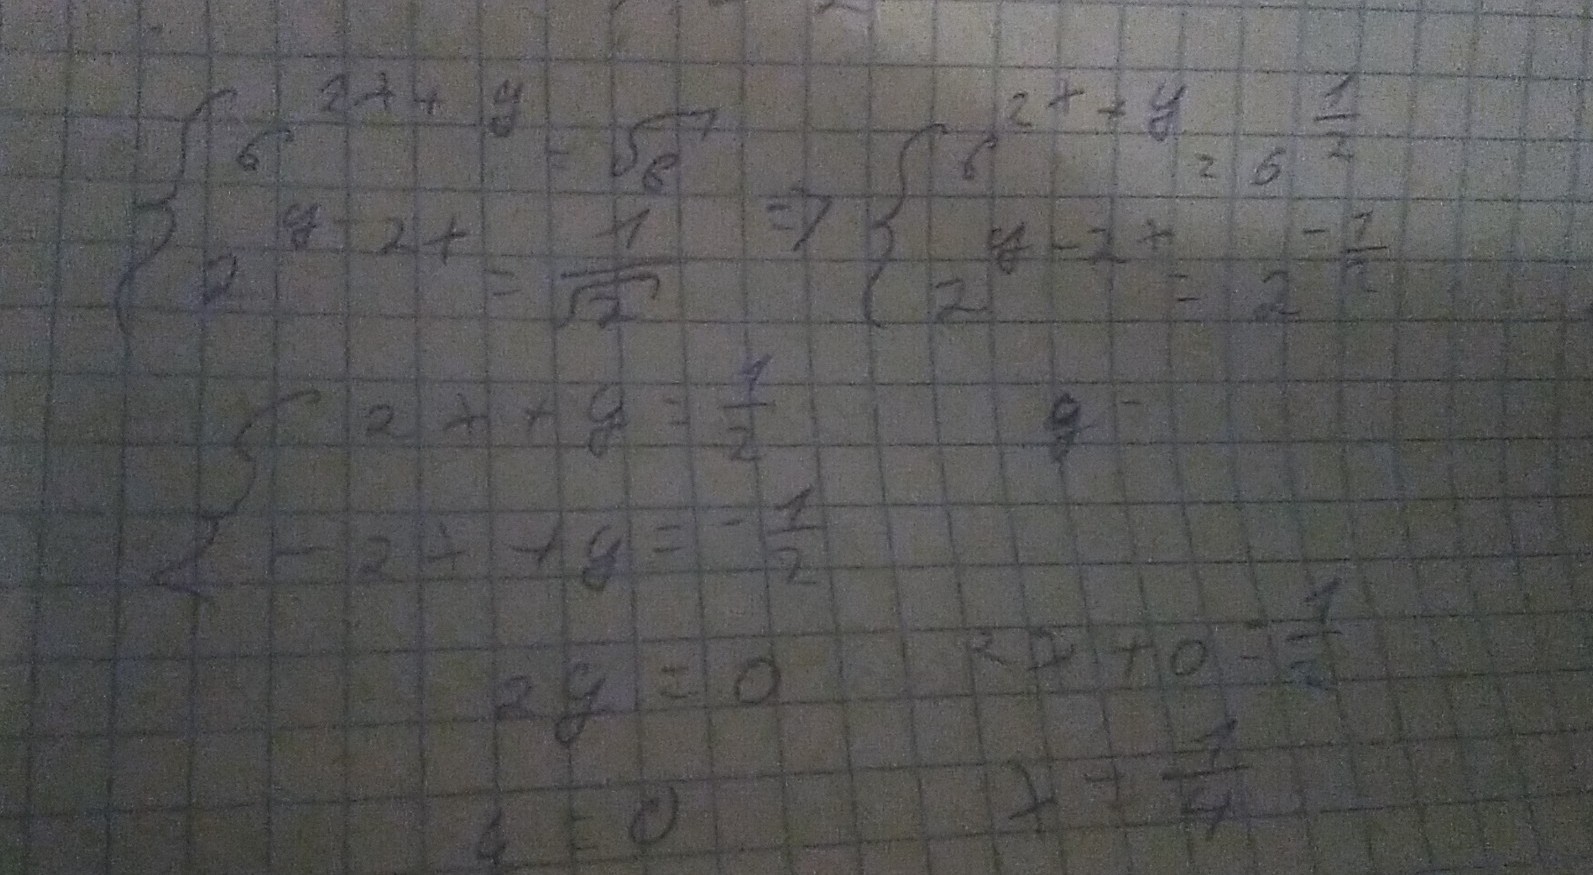 { 6^(2x + y) = √6 => { 6^(2x + y) = 6^(1/2)
{ 2^(y - 2x) = 1/√2 { 2^(y - 2x) = 2^(-1/2)
{ 2x + y = 1/2 y -
{ - 2x + y = - 1/2
2y = 0 2x + 0 = 1/2
y = 0 x = 1/4